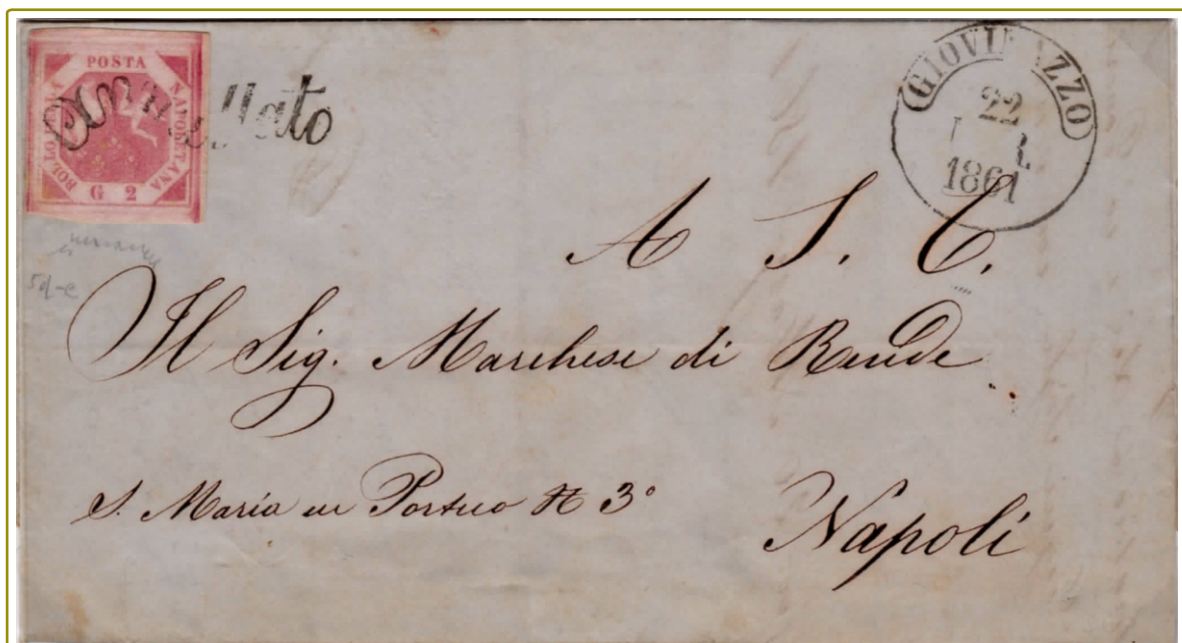 POSTA
NAPOLETANA
BOLLO DELLA
G 2
Annullato
GIOVINAZZO
22
1861
5d-e
A S. E.
Il Sig. Marchese di Rende
S. Maria in Portico N 3°
Napoli